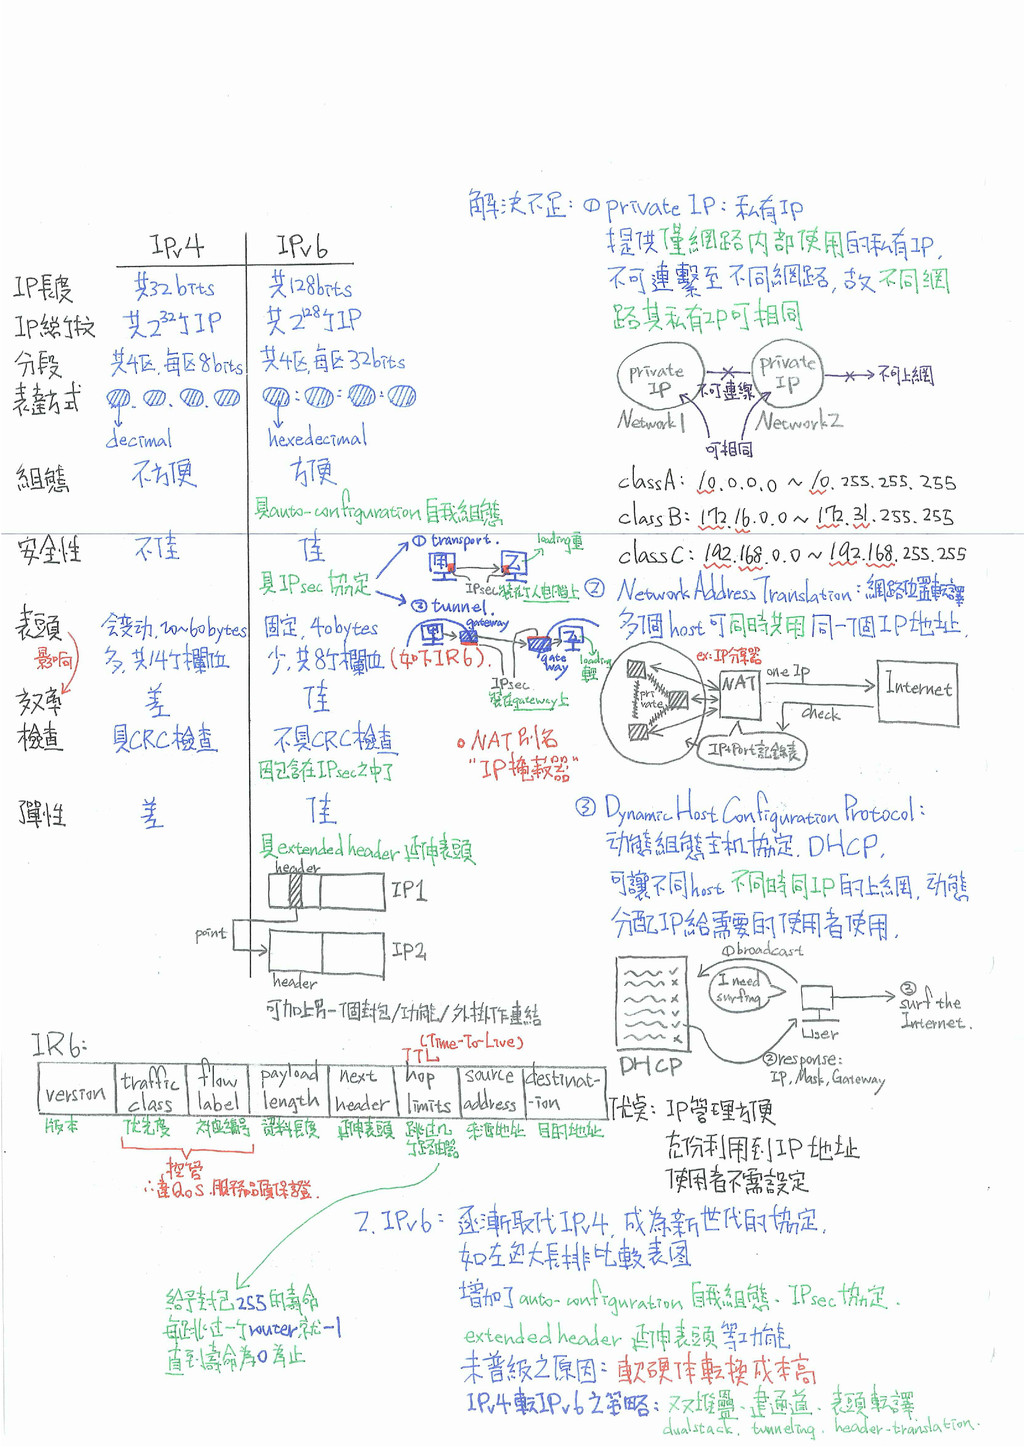 解決不足: ① private IP: 私有IP
提供僅網路內部使用的私有IP,
不可連繫至不同網路, 故不同網
路其私有IP可相同
private IP
不可連線
private IP
不可上網
Network1
Network2
可相同
classA: 10.0.0.0 ~ 10.255.255.255
class B: 172.16.0.0 ~ 172.31.255.255
class C: 192.168.0.0 ~ 192.168.255.255
② Network Address Translation: 網路位置転譯
多個host可同時共用同一個IP地址.
ex: IP分享器
private
NAT
one Ip
Internet
check
IP+Port記錄表
③ Dynamic Host Configuration Protocol:
动態組態主机協定. DHCP,
可讓不同host不同時同IP的上網, 动態
分配IP給需要的使用者使用.
①broadcast
I need surfing
User
③ surf the Internet.
DHCP
②response:
IP, Mask, Gateway
优点: IP管理方便
充份利用到IP地址
使用者不需設定
IPv4 IPv6
IP長度 共32bits 共128bits
IP総个校 共2³²个IP 共2¹²⁸个IP
分段 共4区, 每区8bits 共4区, 每区32bits
表達方式
decimal hexedecimal
組態 不方便 方便
具auto-configuration 自我組態
安全性 不佳 佳
具IPsec協定
① transport.
甲
乙
loading重
IPsec裝在个人电腦上
② tunnel.
甲
gateway
gateway
乙
loading輕
IPsec
裝在gateway上
表頭 会变动, 20~60bytes 固定, 40bytes
影响 多, 共14个欄位 少, 共8个欄位 (如下IR6).
效率 差 佳
檢查 具CRC檢查 不具CRC檢查
因包含在IPsec之中了
。NAT別名
"IP掩蔽器"
彈性 差 佳
具extended header 延伸表頭
header
IP1
point
IP2
header
可加上另一個封包/功能/外掛作連結
IR6:
(Time-To-Live)
TTL
version
traffic class
flow label
payload length
next header
hop limits
source address
destination
版本
优先度
对应編号
資料長度
延伸表頭
跳过几个路由器
來源地址
目的地址
控管
∴達QoS.服務品質保證.
給予封包255的壽命
每跳过一个router, 就-1
直到壽命為0為止
2. IPv6: 逐漸取代IPv4, 成為新世代的協定.
如左邊大長排比較表図
增加了auto-configuration 自我組態、IPsec協定.
extended header 延伸表頭 等功能
未普級之原因: 軟硬体転換成本高
IPv4転IPv6之策略: 双堆疊、建通道、表頭転譯
dualstack, tunneling, header-translation.